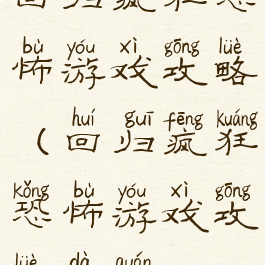 回归疯狂恐
bù yóu xì gōng lüè
怖游戏攻略
huí guī fēng kuáng
(回归疯狂
kǒng bù yóu xì gōng
恐怖游戏攻
lüè dà quán